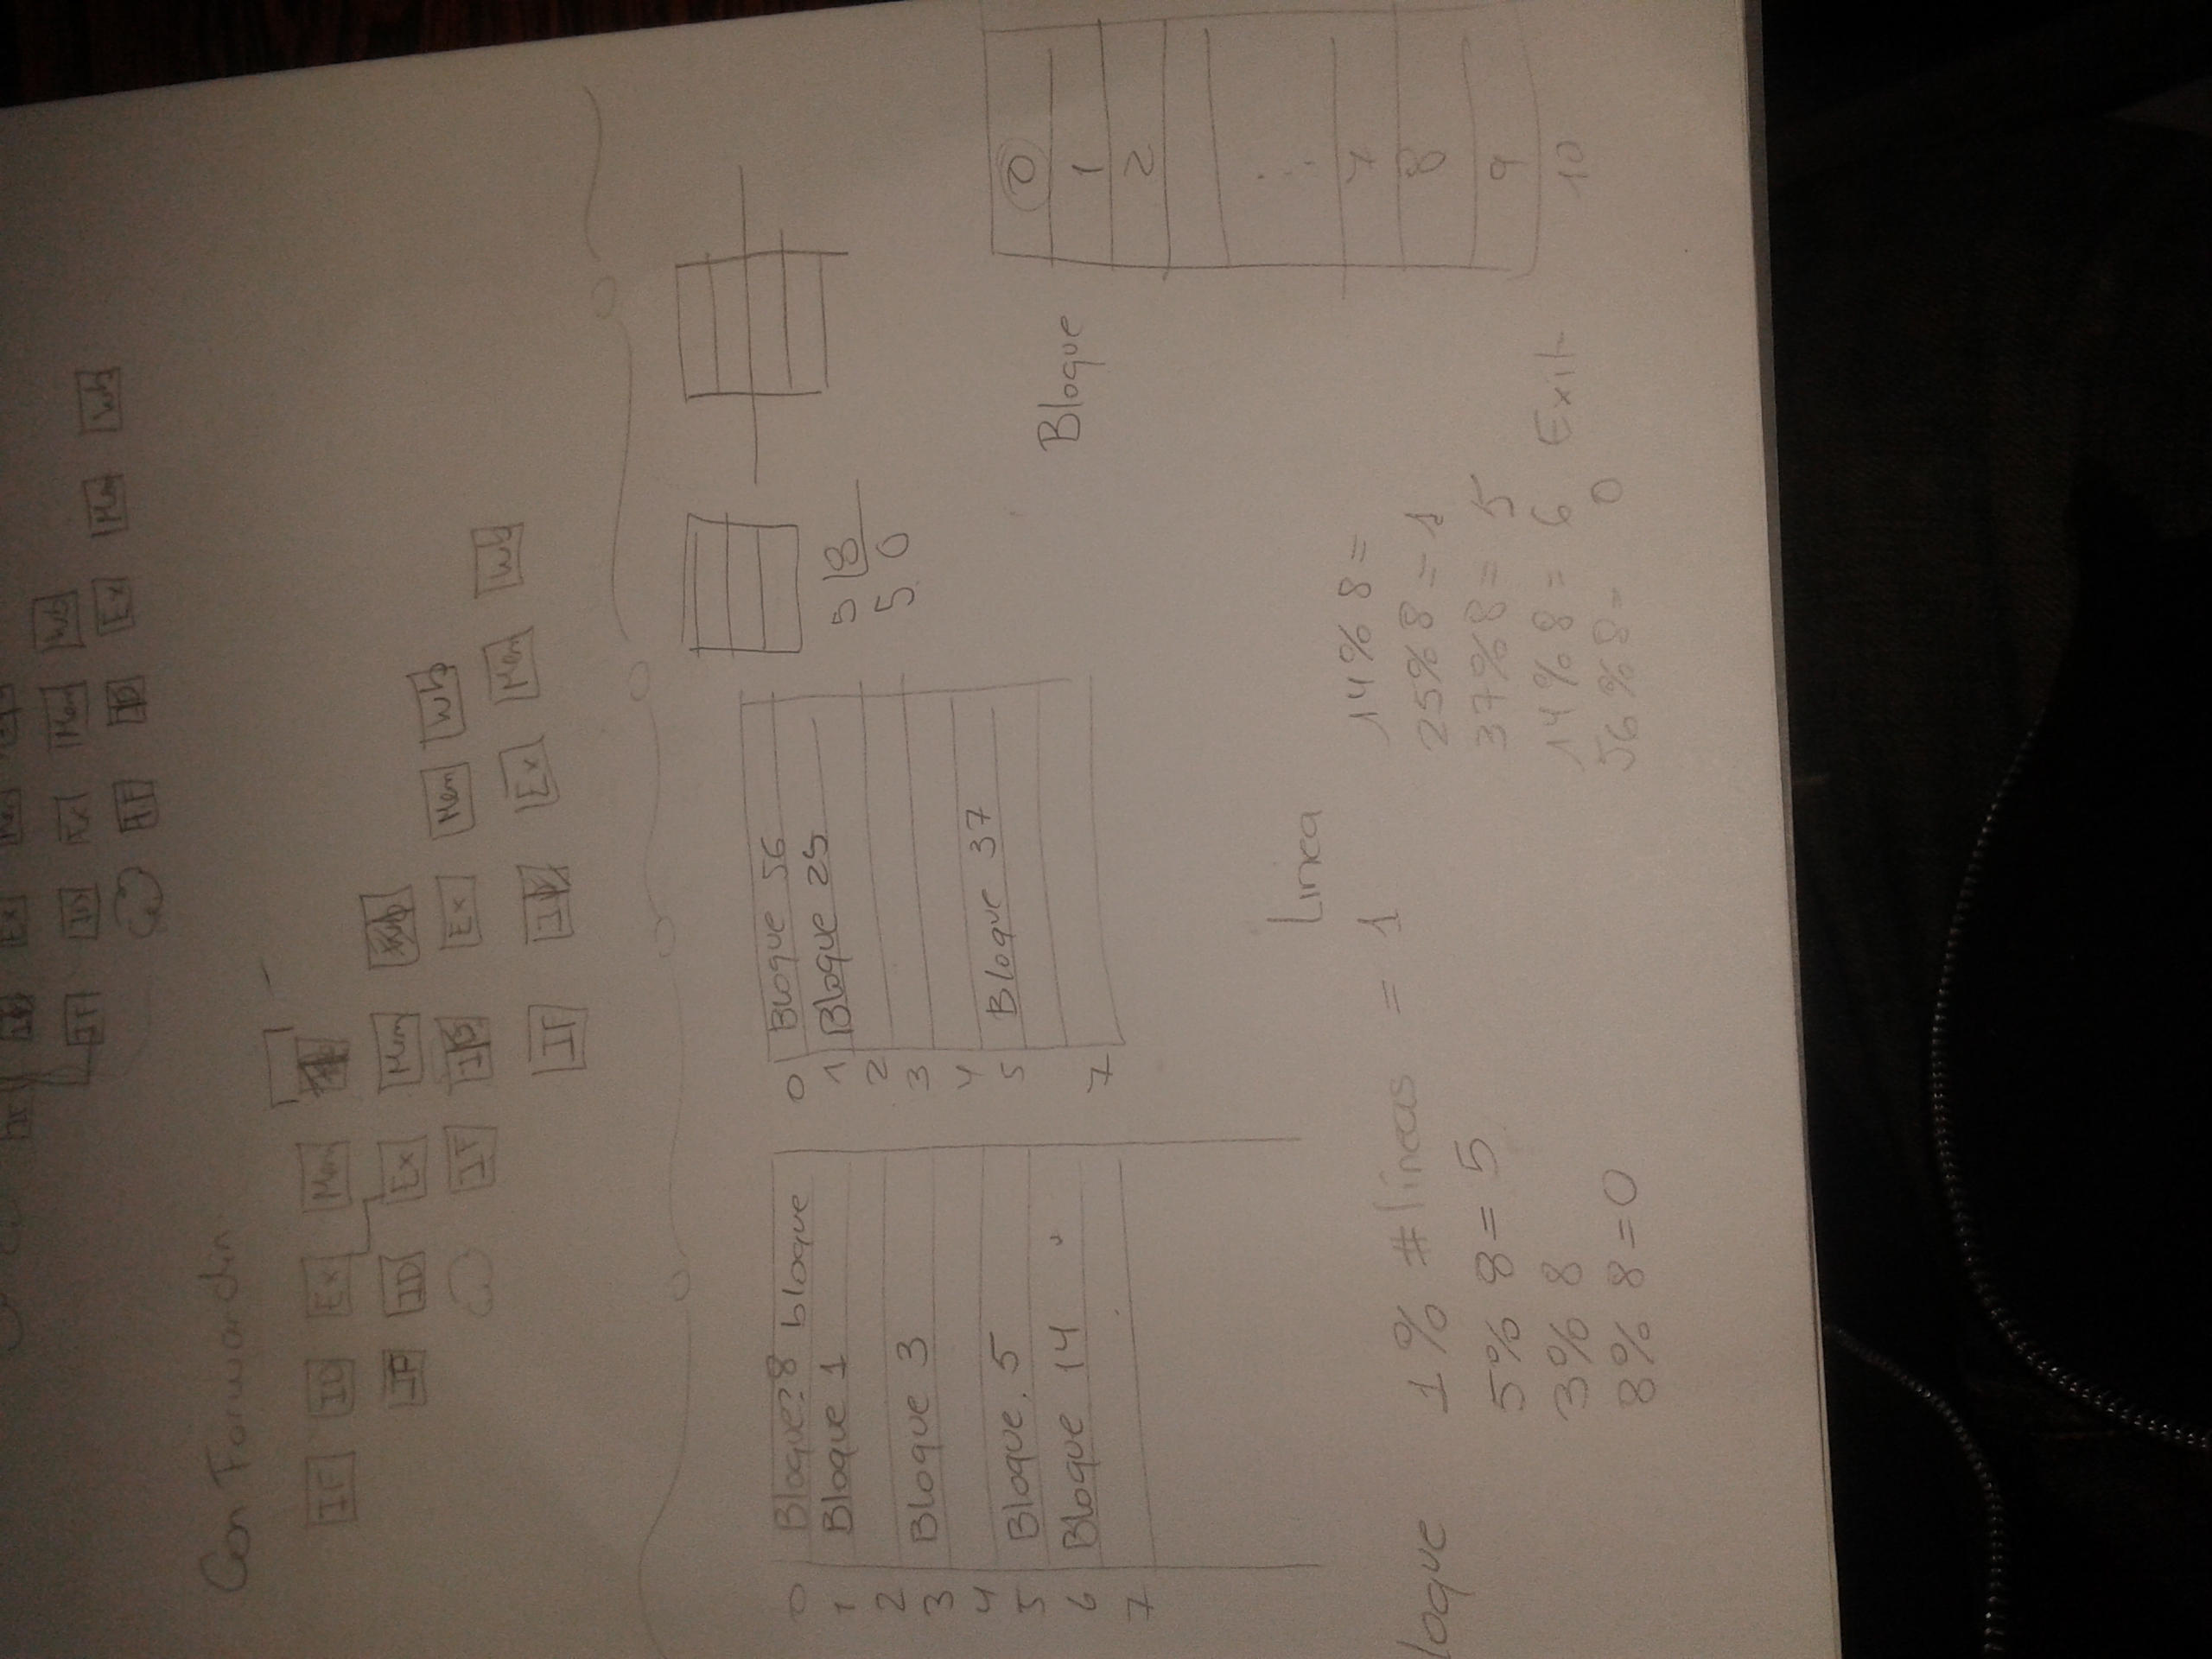 IF ID Ex Mem
IF ID Ex Mem Wb
IF ID Ex Mem Wb
Con Forwardin
IF ID Ex Mem
IF ID Ex Mem Wb
IF ID Ex Mem Wb
IF ID Ex Mem Wb
0 Bloque?8 bloque
1 Bloque 1
2
3 Bloque 3
4
5 Bloque. 5
6 Bloque 14
7
0 Bloque 56
1 Bloque 25
2
3
4
5 Bloque 37
7
5 8
5 0
Bloque
0
1
2
7
8
9
10
Linea
loque 1% #lineas = 1
5% 8= 5
3% 8
8% 8=0
14% 8=
25% 8= 1
37%8= 5
14% 8= 6 Exit
56 %8= 0